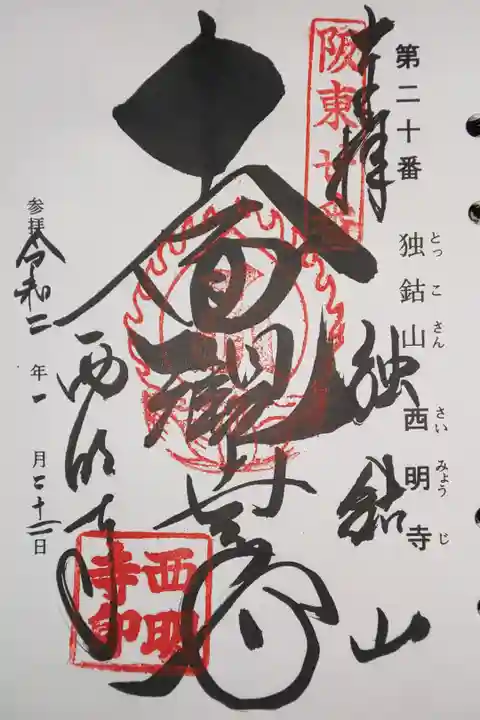 第二十番 独鈷山 西明寺
とっこさん さいみょうじ
奉拝
阪東廿番
独鈷山
十一面観世音
西明寺
西明寺印
参拝 令和二年一月二十二日